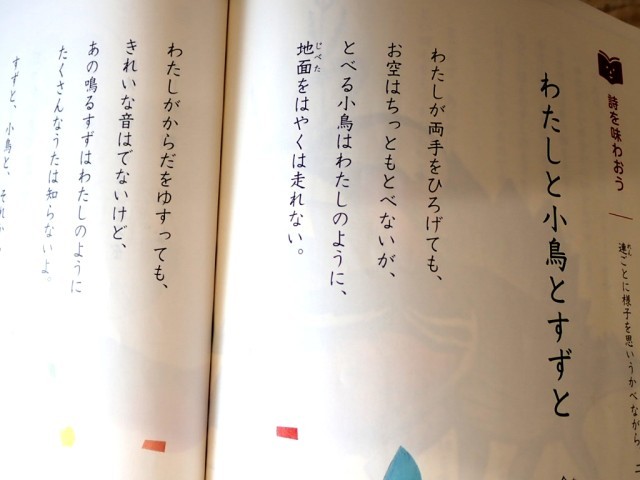 詩を味わおう
連ごとに様子を思いうかべながら
れん
わたしと小鳥とすずと
わたしが両手をひろげても、
お空はちっともとべないが、
とべる小鳥はわたしのように、
地面をはやくは走れない。
じべた
わたしがからだをゆすっても、
きれいな音はでないけど、
あの鳴るすずはわたしのように
たくさんなうたは知らないよ。
すずと、小鳥と、それから